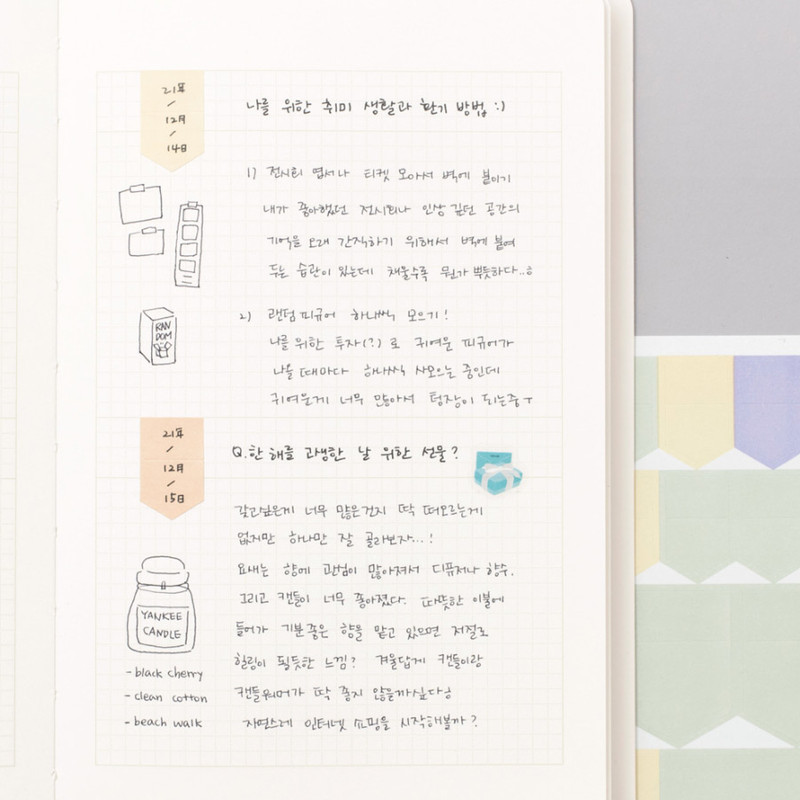 21年
/
12月
/
14日
나를 위한 취미 생활과 환기 방법 :)
1) 전시회 엽서나 티켓 모아서 벽에 붙이기
내가 좋아했던 전시회나 인상 깊던 공간의
기억을 오래 간직하기 위해서 벽에 붙여
두는 습관이 있는데 채울수록 뭔가 뿌듯하다..ㅎ
RAN
DOM
2) 랜덤 피규어 하나씩 모으기!
나를 위한 투자(?)로 귀여운 피규어가
나올 때마다 하나씩 사모으는 중인데
귀여운게 너무 많아서 텅장이 되는중ㅜ
21年
/
12月
/
15日
Q. 한 해를 고생한 날 위한 선물?
갖고싶은게 너무 많은건지 딱 떠오르는게
없지만 하나만 잘 골라보자...!
요새는 향에 관심이 많아져서 디퓨저나 향수,
그리고 캔들이 너무 좋아졌다. 따뜻한 이불에
들어가 기분좋은 향을 맡고 있으면 저절로
힐링이 될듯한 느낌? 겨울답게 캔들이랑
캔들워머가 딱 좋지 않을까싶다ㅎ
자연스레 인터넷 쇼핑을 시작해볼까?
YANKEE
CANDLE
- black cherry
- clean cotton
- beach walk